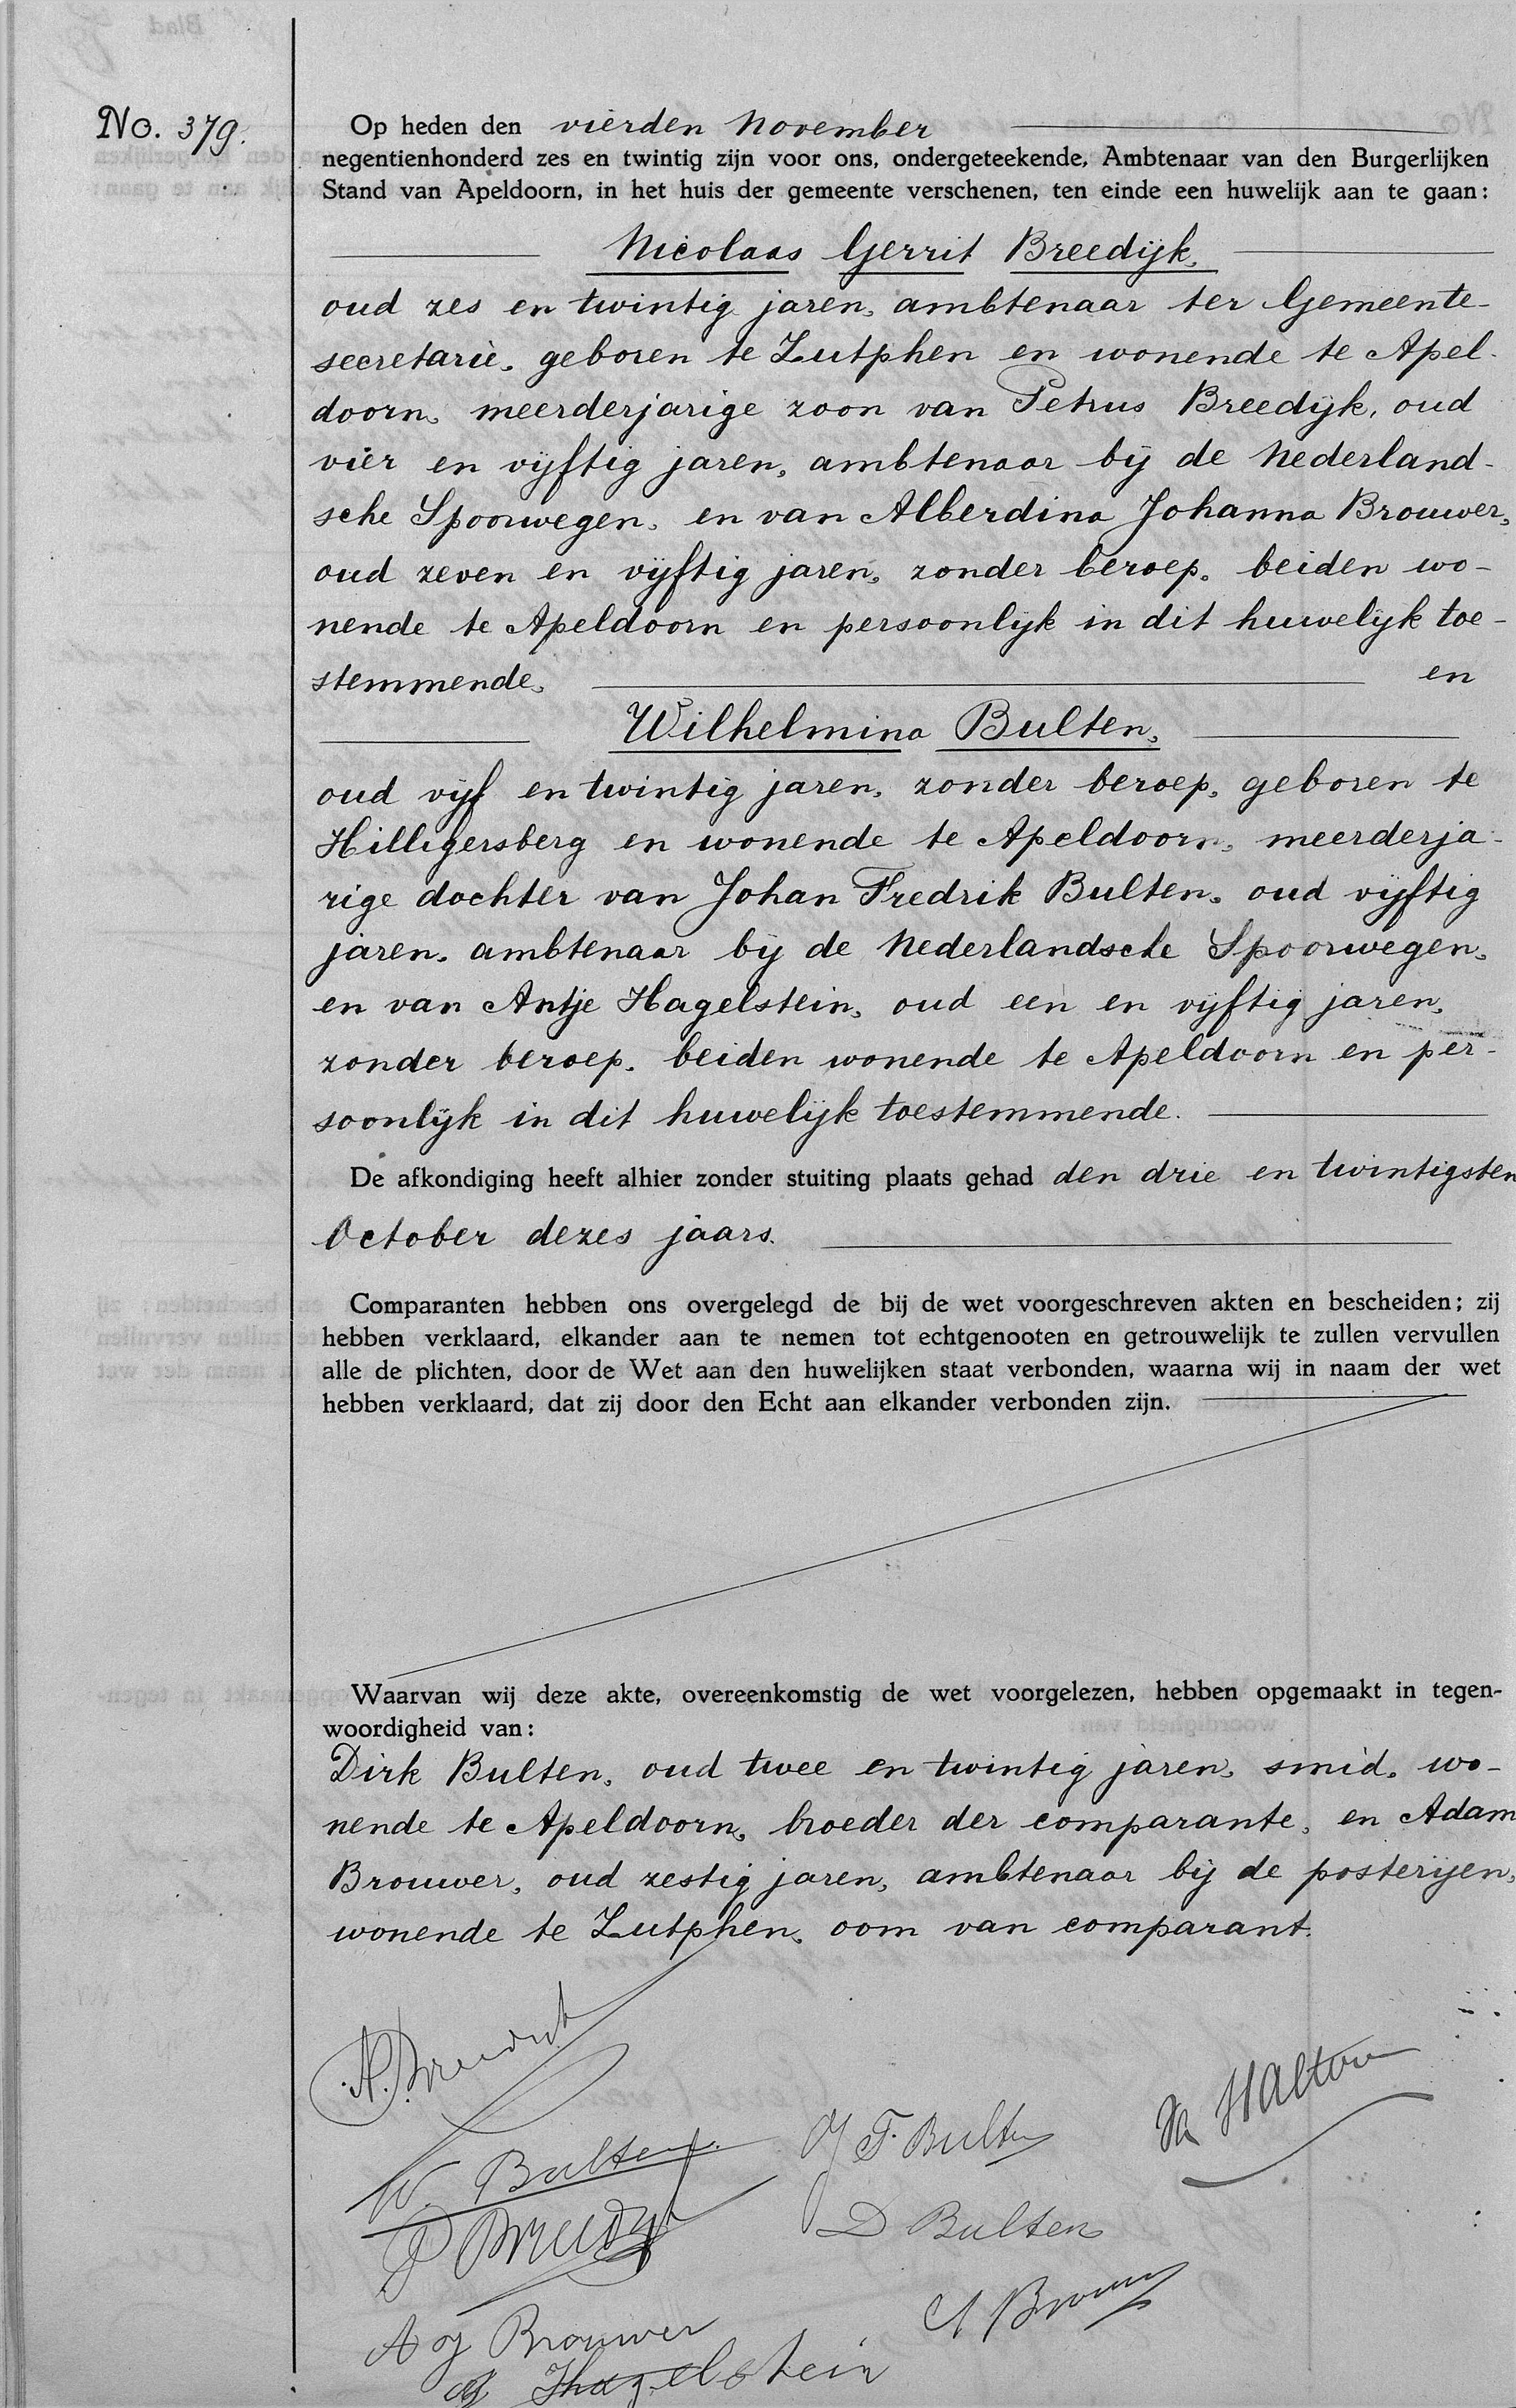 No. 379.
Op heden den vierden November
negentienhonderd zes en twintig zijn voor ons, ondergeteekende, Ambtenaar van den Burgerlijken
Stand van Apeldoorn, in het huis der gemeente verschenen, ten einde een huwelijk aan te gaan:
Nicolaas Gerrit Breedijk,
oud zes en twintig jaren, ambtenaar ter Gemeente-
secretarie, geboren te Zutphen en wonende te Apel-
doorn, meerderjarige zoon van Petrus Breedijk, oud
vier en vijftig jaren, ambtenaar bij de Nederland-
sche Spoorwegen, en van Alberdina Johanna Brouwer,
oud zeven en vijftig jaren, zonder beroep, beiden wo-
nende te Apeldoorn en persoonlijk in dit huwelijk toe-
stemmende, en
Wilhelmina Bulten,
oud vijf en twintig jaren, zonder beroep, geboren te
Hilligersberg en wonende te Apeldoorn, meerderja-
rige dochter van Johan Fredrik Bulten, oud vijftig
jaren, ambtenaar bij de Nederlandsche Spoorwegen,
en van Antje Hagelstein, oud een en vijftig jaren,
zonder beroep, beiden wonende te Apeldoorn en per-
soonlijk in dit huwelijk toestemmende.
De afkondiging heeft alhier zonder stuiting plaats gehad den drie en twintigsten
October dezes jaars.
Comparanten hebben ons overgelegd de bij de wet voorgeschreven akten en bescheiden; zij
hebben verklaard, elkander aan te nemen tot echtgenooten en getrouwelijk te zullen vervullen
alle de plichten, door de Wet aan den huwelijken staat verbonden, waarna wij in naam der wet
hebben verklaard, dat zij door den Echt aan elkander verbonden zijn.
Waarvan wij deze akte, overeenkomstig de wet voorgelezen, hebben opgemaakt in tegen-
woordigheid van:
Dirk Bulten, oud twee en twintig jaren, smid, wo-
nende te Apeldoorn, broeder der comparante, en Adam
Brouwer, oud zestig jaren, ambtenaar bij de posterijen,
wonende te Zutphen, oom van comparant.
N. Breedijk
W. Bulten
J F. Bulten
P Breedijk
D Bulten
A Brouwer
A J Brouwer
A Hagelstein